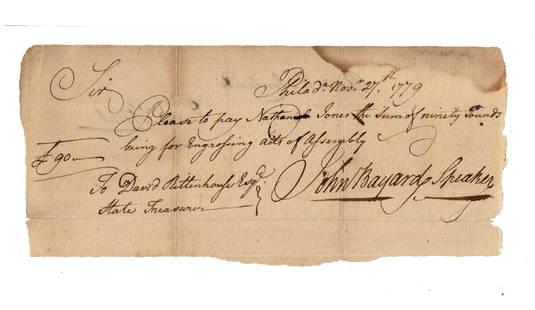 Philad.ᵃ Nov.ʳ 27.ᵗʰ 1779
Sir
Please to pay Nathan Jones the Sum of ninety Pounds
being for Engrossing Acts of Assembly
£90—
To David Rittenhouse Esq.ʳ
State Treasurer
John Bayard Speaker